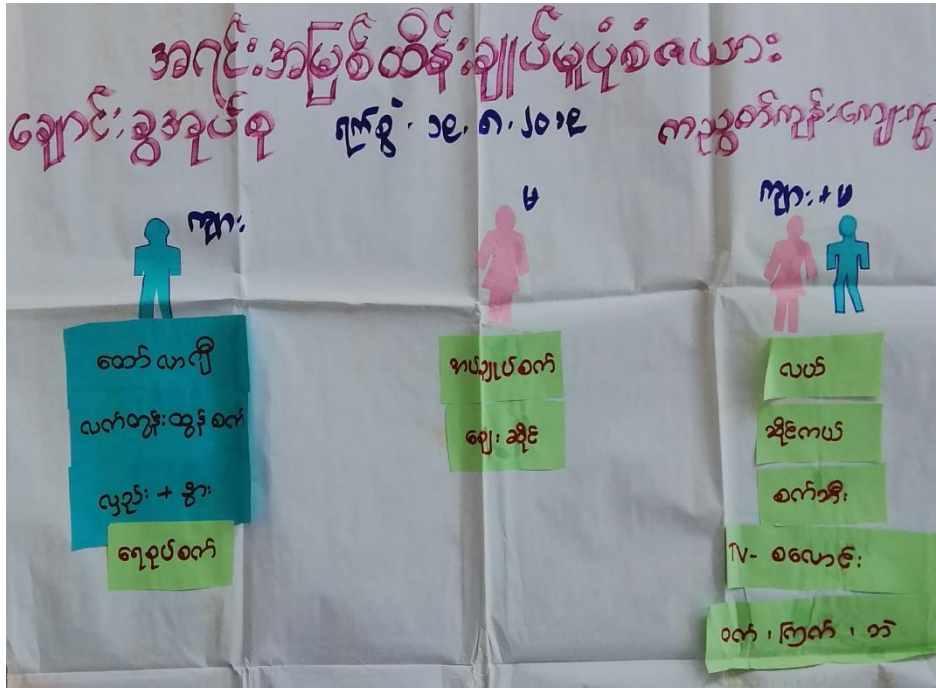 အရင်းအမြစ်ထိန်းချုပ်မှုပုံစံဇယား
ချောင်းခွအုပ်စု ရက်စွဲ . ၁၉ . ၈ . ၂၀၁၉ ကညွတ်ကုန်းကျေးရွာ
ကျား
မ
ကျား + မ
ထော်လာဂျီ
လက်တွန်းထွန်စက်
လှည်း + နွား
ရေစုပ်စက်
အပ်ချုပ်စက်
ဈေးဆိုင်
လယ်
ဆိုင်ကယ်
စက်ဘီး
TV - စလောင်း
ဝက် ၊ ကြက် ၊ ဘဲ